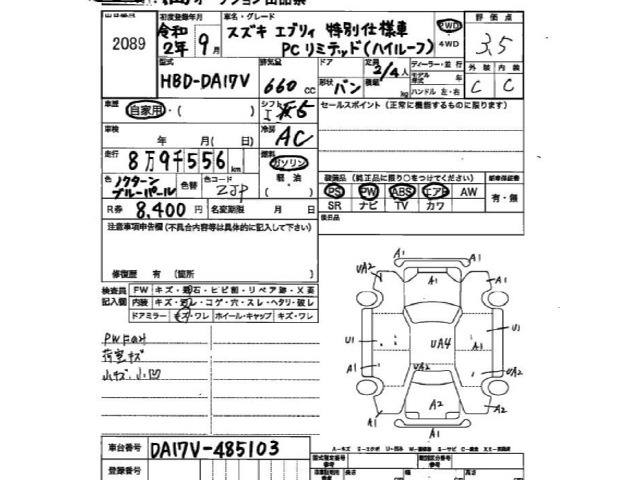 オークション出品票
出品番号 2089
初度登録年月 令和2年9月
車名・グレード スズキ エブリィ 特別仕様車
PCリミテッド(ハイルーフ)
2WD
4WD
評価点 3.5
型式 HBD-DA17V
排気量 660 CC
ドア形状 バン
定員 2/4人
積載 kg
ディーラー・並行
モデル年式
ハンドル 左・右
外装 C
内装 C
車歴 自家用・( )
シフト I 5
セールスポイント(正常に機能するものに限ります)
車検 年 月 日
冷房 AC
走行 8万9千556km
燃料 ガソリン
軽油
( )
色 ノクターンブルーパール
色替
色コード ZJP
装備品(純正品に限り○をつけてください)
新車保証書
PS PW ABS エアB AW
SR ナビ TV カワ
有・無
R券 8,400円
名変期限 月 日
後日品
注意事項申告欄(不具合内容等は具体的に記入して下さい)
修復歴 有(箇所 )
検査員記入欄
FW キズ・飛石・ヒビ割・リペア跡・X要
内装 キズ・汚レ・コゲ・穴・スレ・ヘタリ・破レ
ドアミラー キズ・ワレ ホイール・キャップ キズ・ワレ
PWF
荷室キズ
小キズ、小凹
A1
A1
UA2
A1
A2
U1
U1
A1
UA4
A1
A2
A2
A2
A1
車台番号 DA17V-485103
登録番号